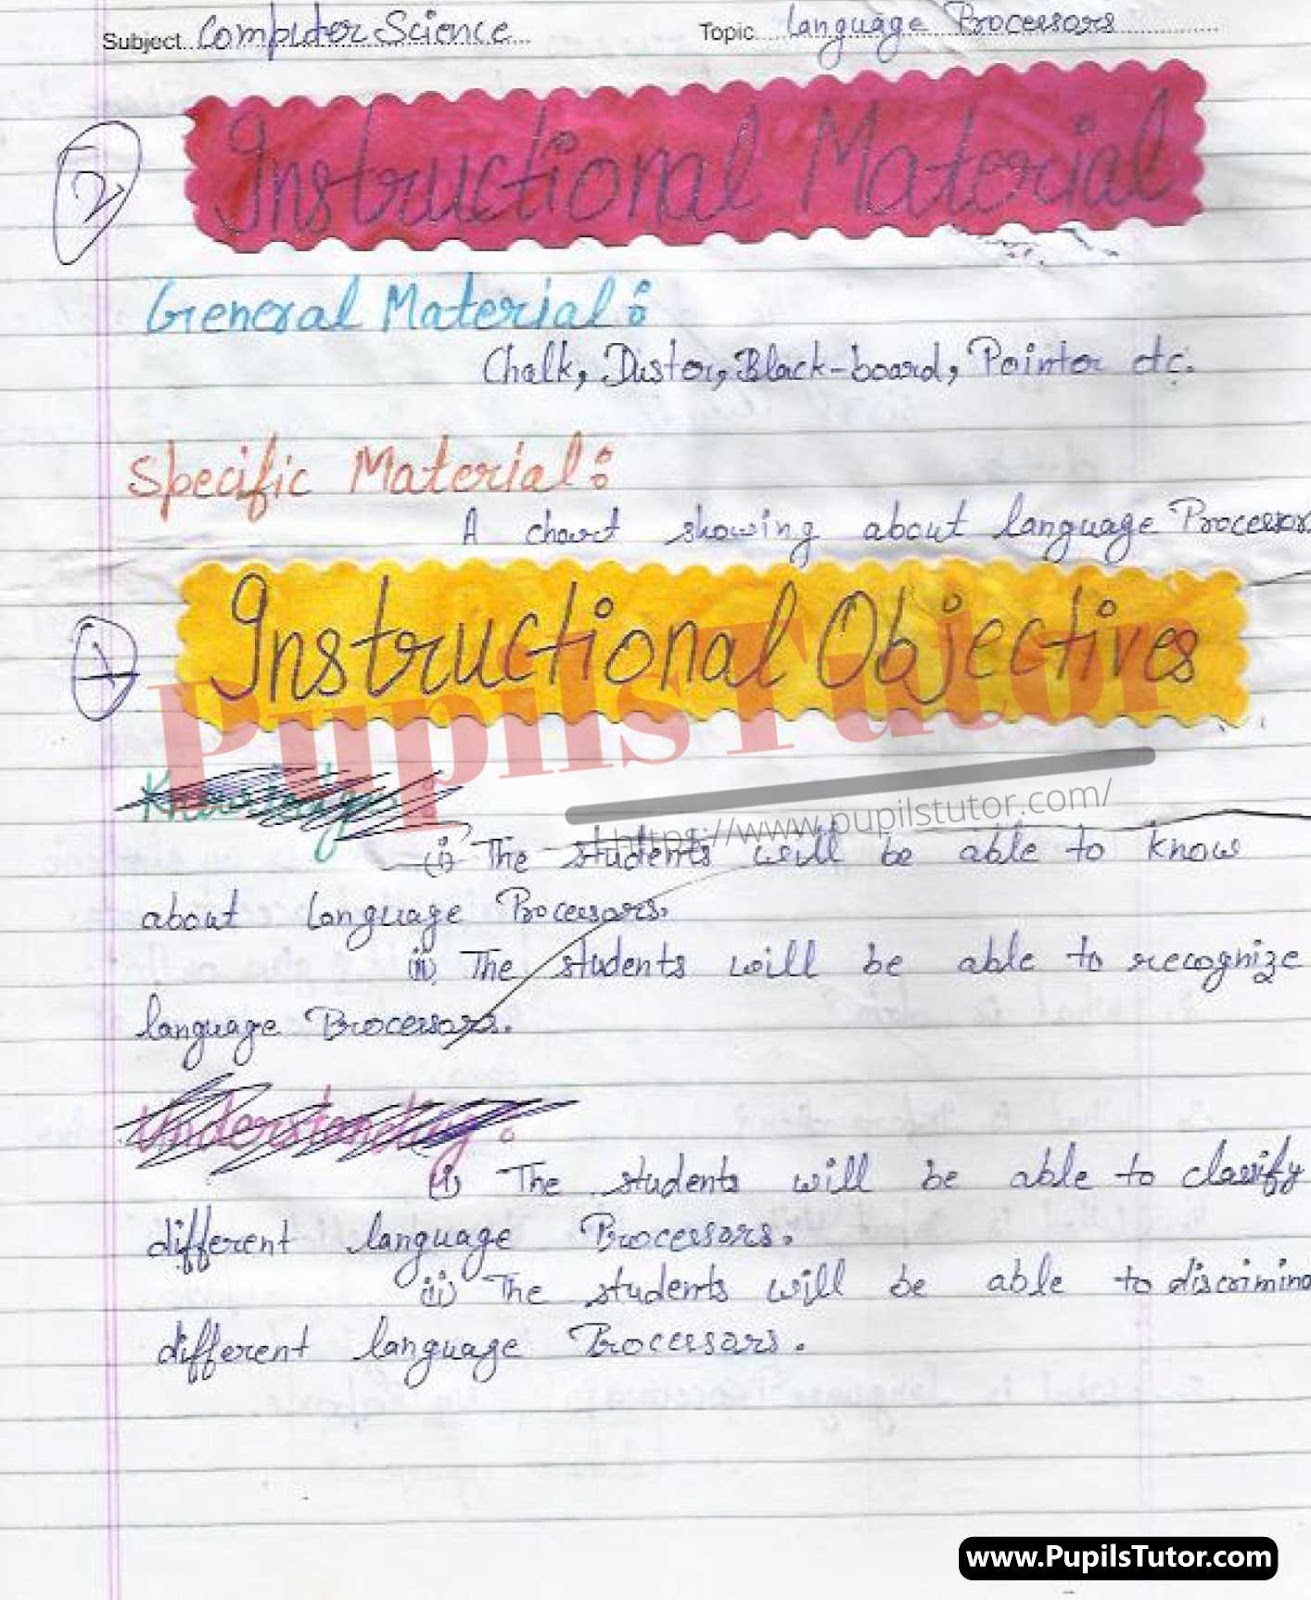 Subject Computer Science Topic Language Processors
2
Instructional Material
General Material:
Chalk, Duster, Black-board, Pointer etc.
Specific Material:
A chart showing about language Processors
1
Instructional Objectives
PupilsTutor
Knowledge:
https://www.pupilstutor.com/
(i) The students will be able to know
about language Processors.
(ii) The students will be able to recognize
language Processors.
Understanding:
(i) The students will be able to classify
different language Processors.
(ii) The students will be able to discrimina
different language Processors.
www.PupilsTutor.com